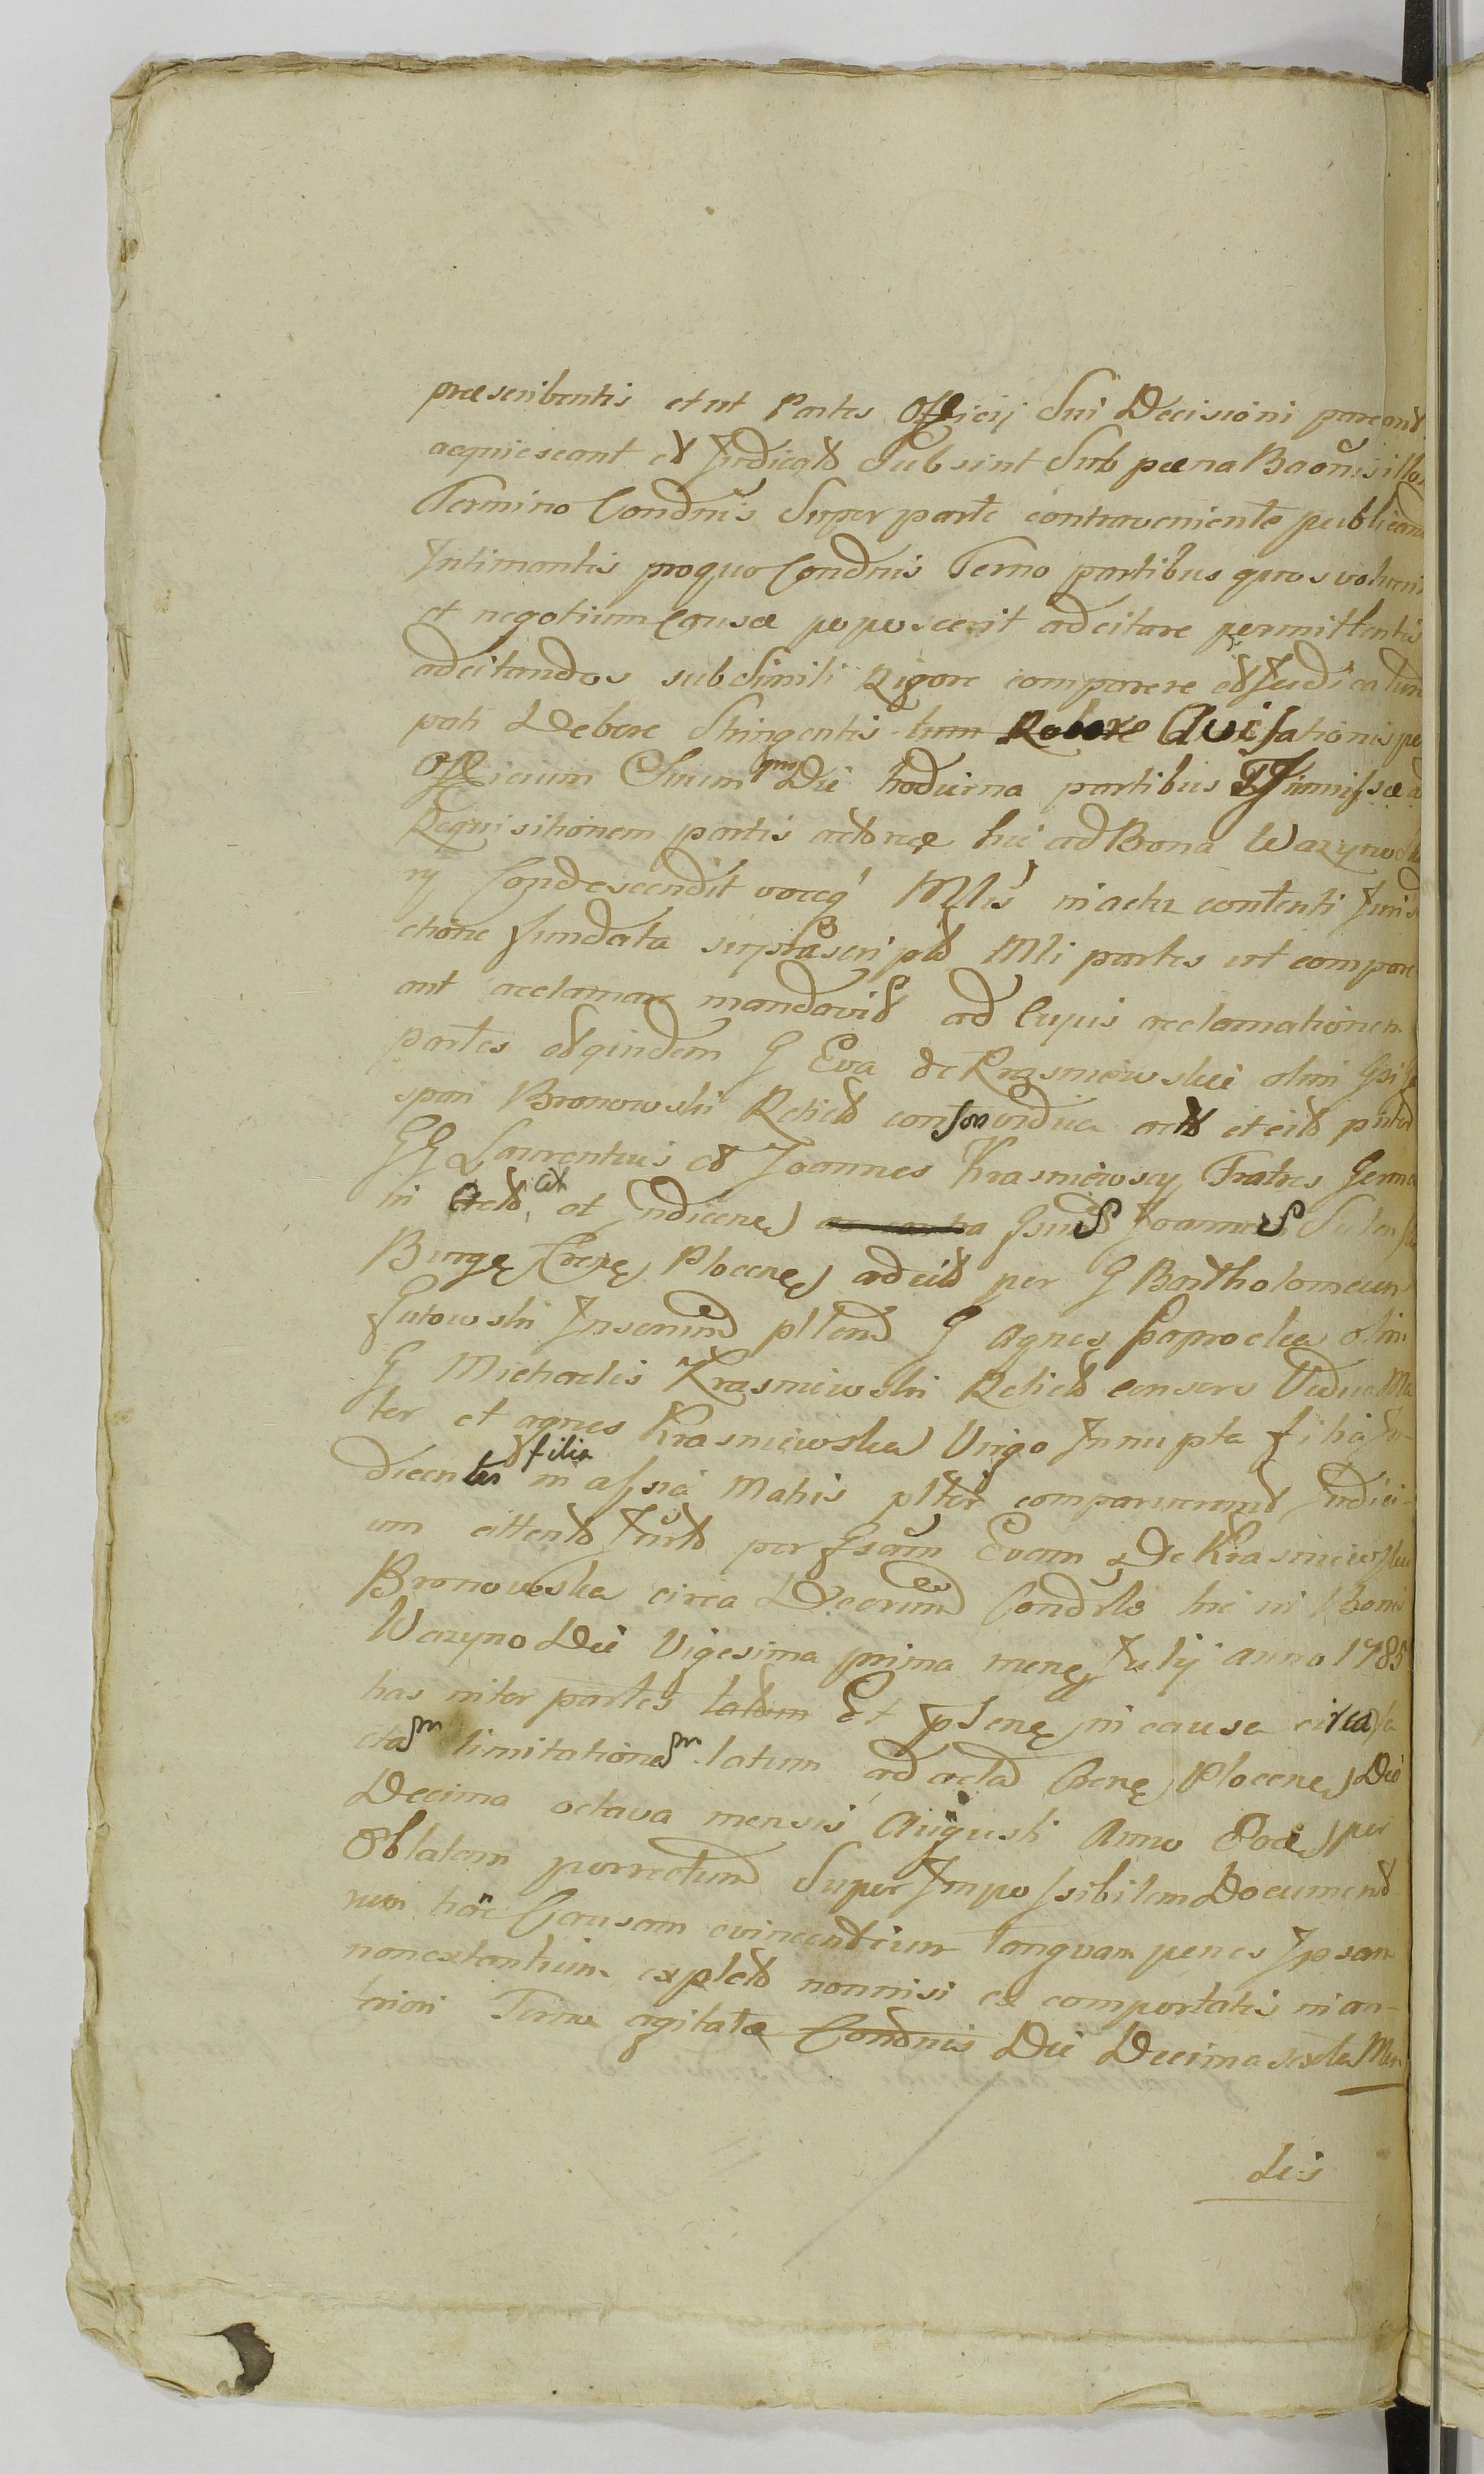 præscribentis et ut Partes Officij Sui Decisioni pareant
acquiescant et Judicato Subsint Sub pæna Baõnis illon
Termino Condnis Super parte contraveniente publicand
Intimantis pro quo Condnis Terno partibus quos volueri
et negotium Causæ poposcerit adcitare permittentis
adcitandos sub Simili Rigore comparere et Judicatum
pati Debere Stringentis tum Robore Avisationis per
Officium Suum pro Die hodierna partibus immissæ ad
Requisitionem partis actoreæ hic ad Bona Wazyno
condescendit voceq Mlis in actu contenti Juris
ctione fundata supra scripto Mli partes ut compare
ant acclamare mandavit ad Cujus acclamationem
partes et quidem G Eva de Krasniewskie olim Gsi Ga
spari Bronowski Relicta consors vidua acta et cita
GG Laurentius et Joannes Krasniewscy Fratres Germa
ni et Indicene Joannes
Burgę Crenę Plocenę adcit per G Bartholomeum
Gutowski G Agnes Paprocka olim
G Michaelis Krasniewski Relicta consors Vidua Ma
ter et agnes Krasniewska Virgo Innupta filia In
dicentes filia in assñcia Matris plter comparuerunt Judici-
um per Gsam Evam De Krasniewskie
Bronowska circa Decretum Condrle hic in Bonis
Wazyno Die Vigesima prima menę Julij anno 1785
has inter partes latum Et in causa circa fa
ctam limitationem latum ad acta Crenę Plocenę Die
Decima octava mensis Augusti Anno Eodę per
Oblatam porrectum Super Impossibilem Document
rum hãc Causam evincentium tanquam penes Ipsam
non extantium expleto nonnisi ex comportatis in an-
teriori Terno agitatæ Condnis Die Decima sexta Men
sis